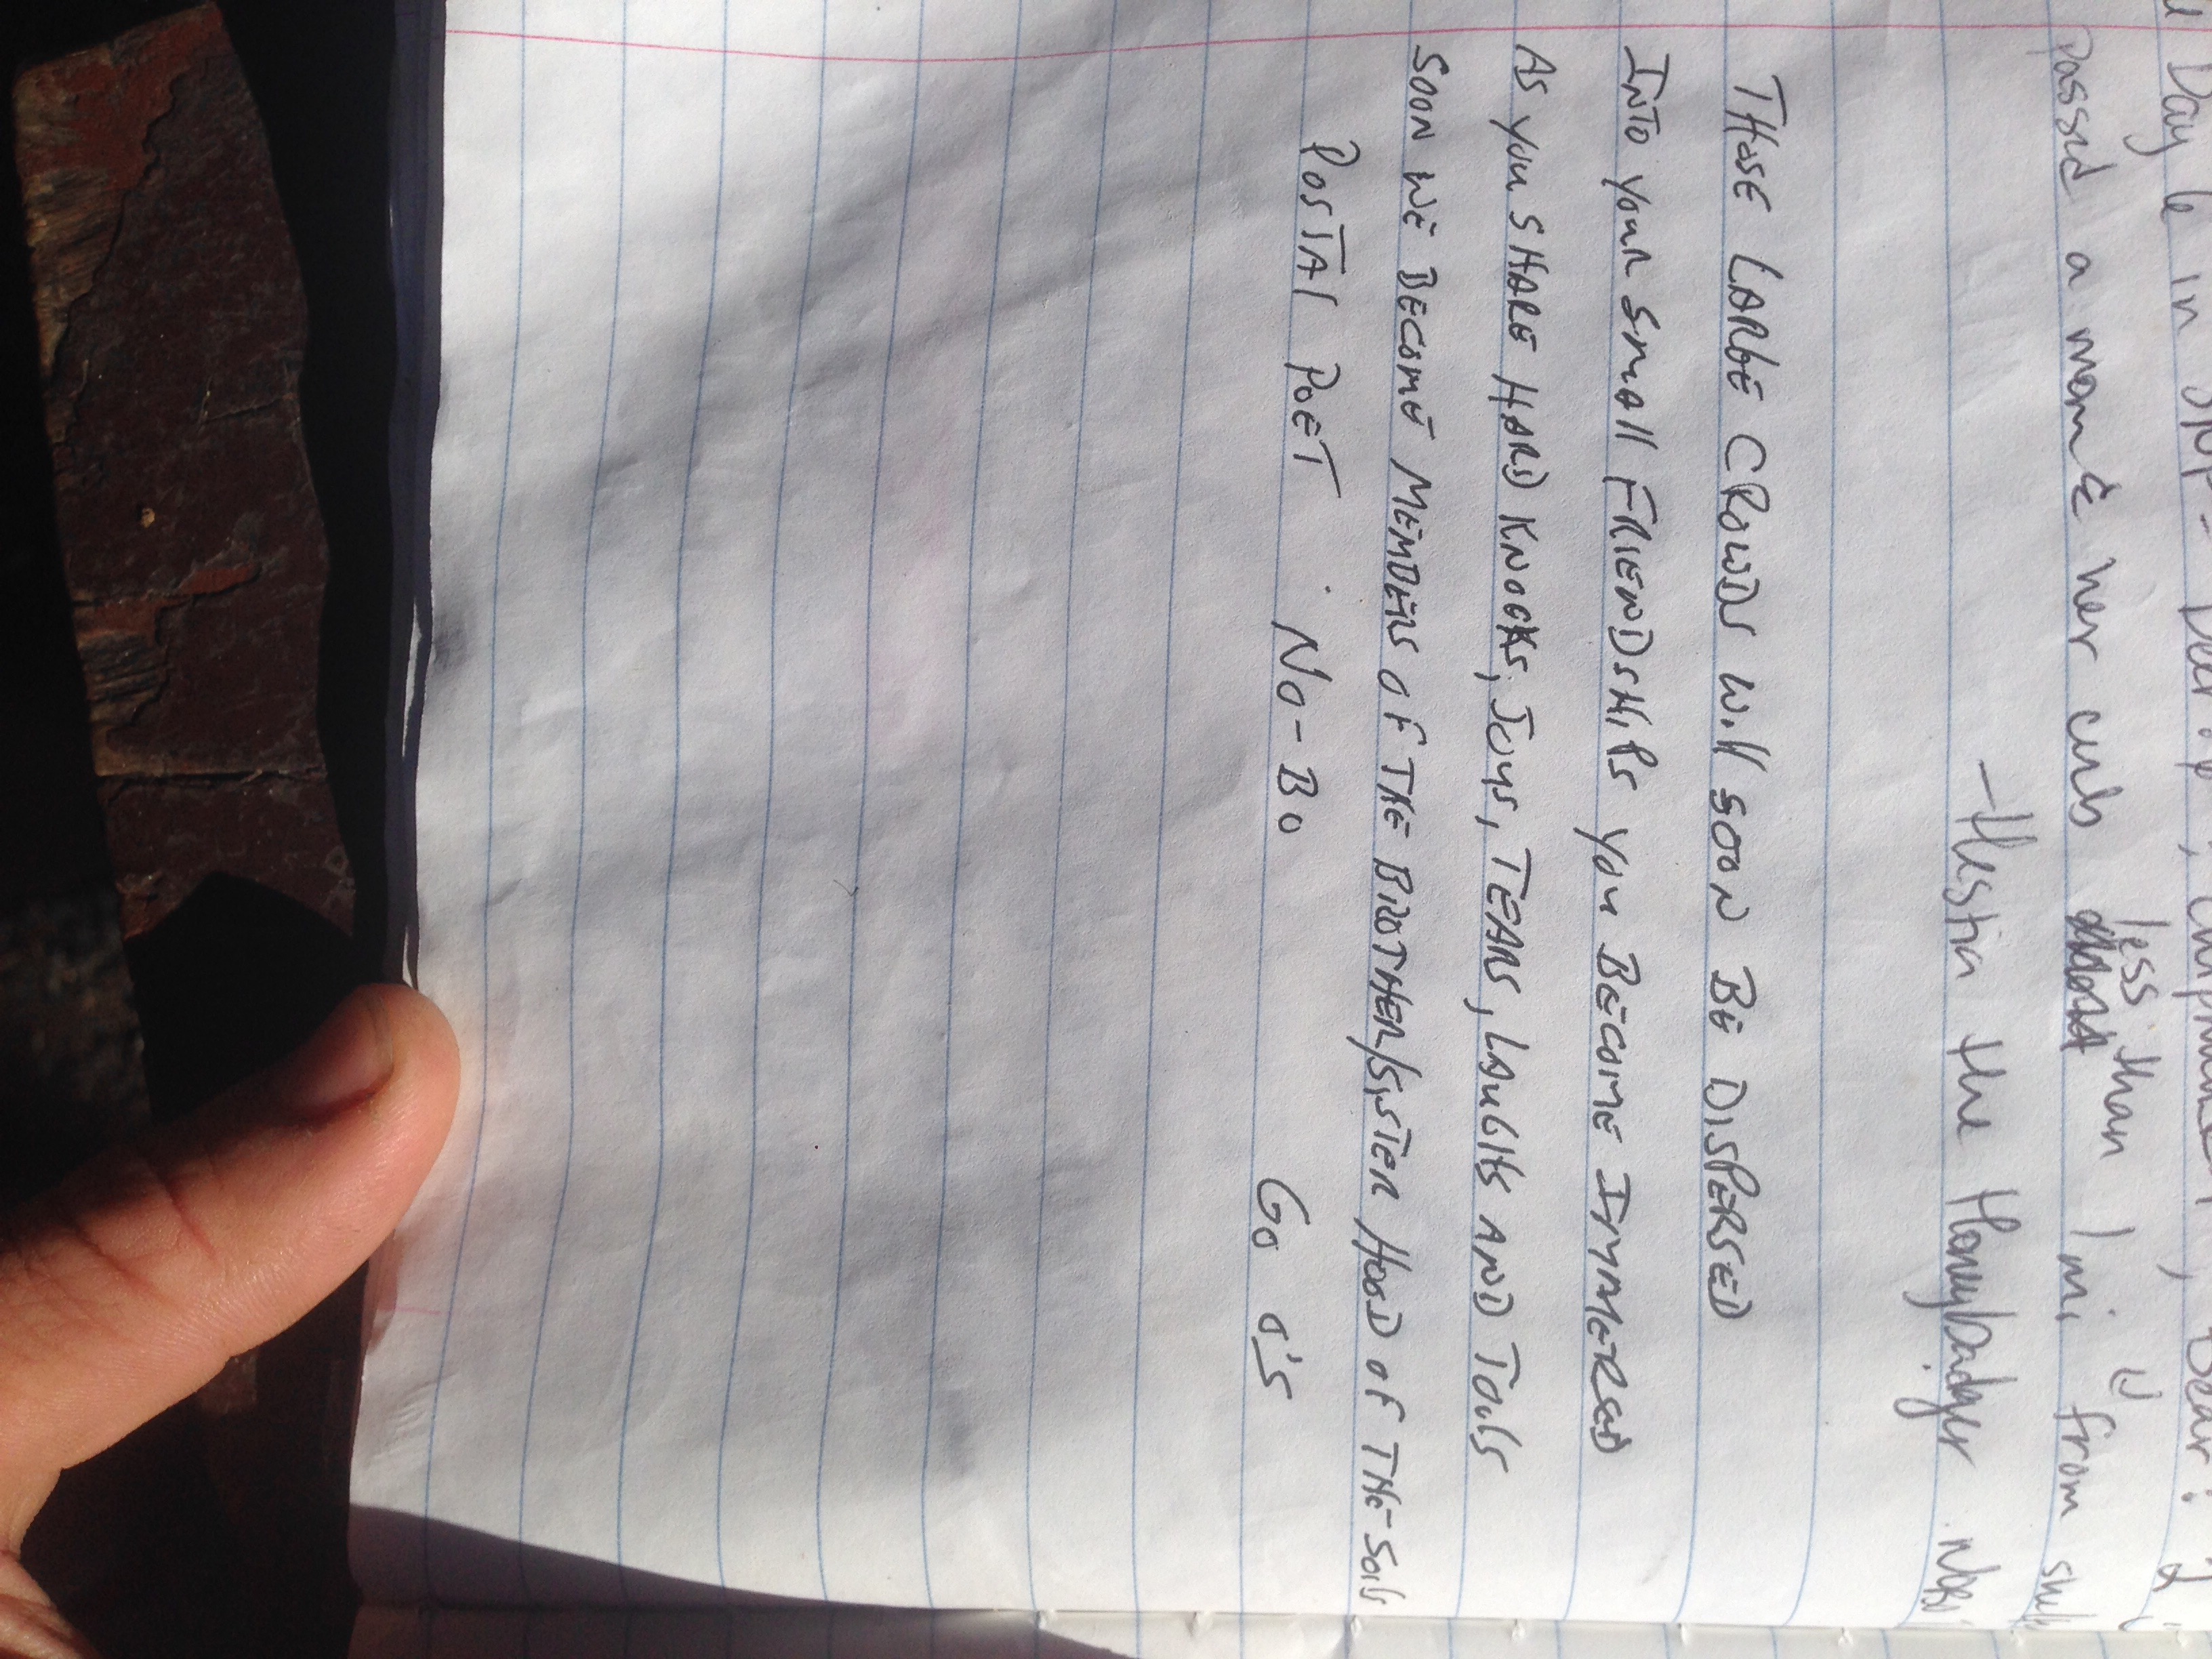 Day 6 in
passed a mom & her cub less than 1 mi from
- Hestia the Honeybadger
THOSE LARGE CROWDS Will SOON BE DISPERSED
INTO YOUR SMALL FRIENDSHIPS YOU BECOME IMMERSED
AS YOU SHARE HARD KNOCKS, JOYS, TEARS, LAUGHS AND TOILS
SOON WE BECOME MEMBERS OF THE BROTHER/SISTER HOOD OF THE SOILS
POSTAL POET NO-BO GO O'S